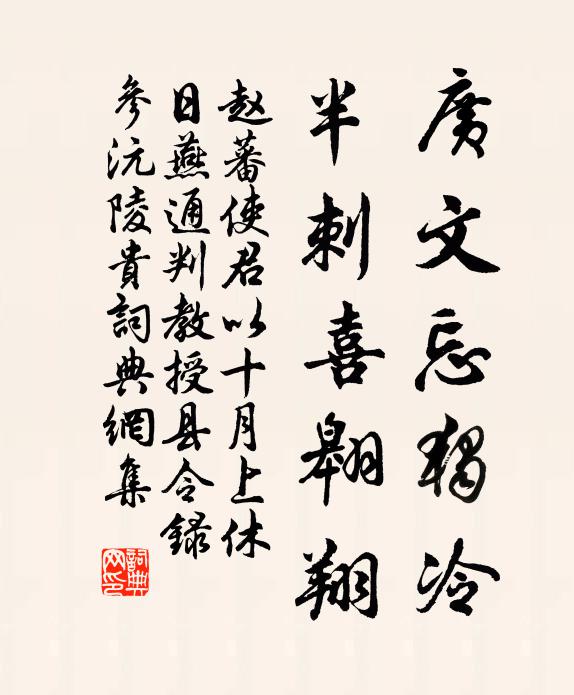 廣文忘獨冷
半刺喜翱翔
赵蕃使君以十月上休
日燕通判教授县令録
參沅陵貴詞典網集
詞典
网印